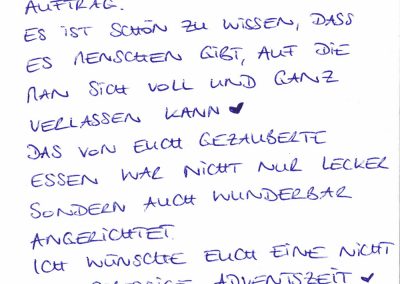 AUFTRAG.
ES IST SCHÖN ZU WISSEN, DASS
ES MENSCHEN GIBT, AUF DIE
MAN SICH VOLL UND GANZ
VERLASSEN KANN ♥
DAS VON EUCH GEZAUBERTE
ESSEN WAR NICHT NUR LECKER
SONDERN AUCH WUNDERBAR
ANGERICHTET.
ICH WÜNSCHE EUCH EINE NICHT
ADVENTSZEIT ♥